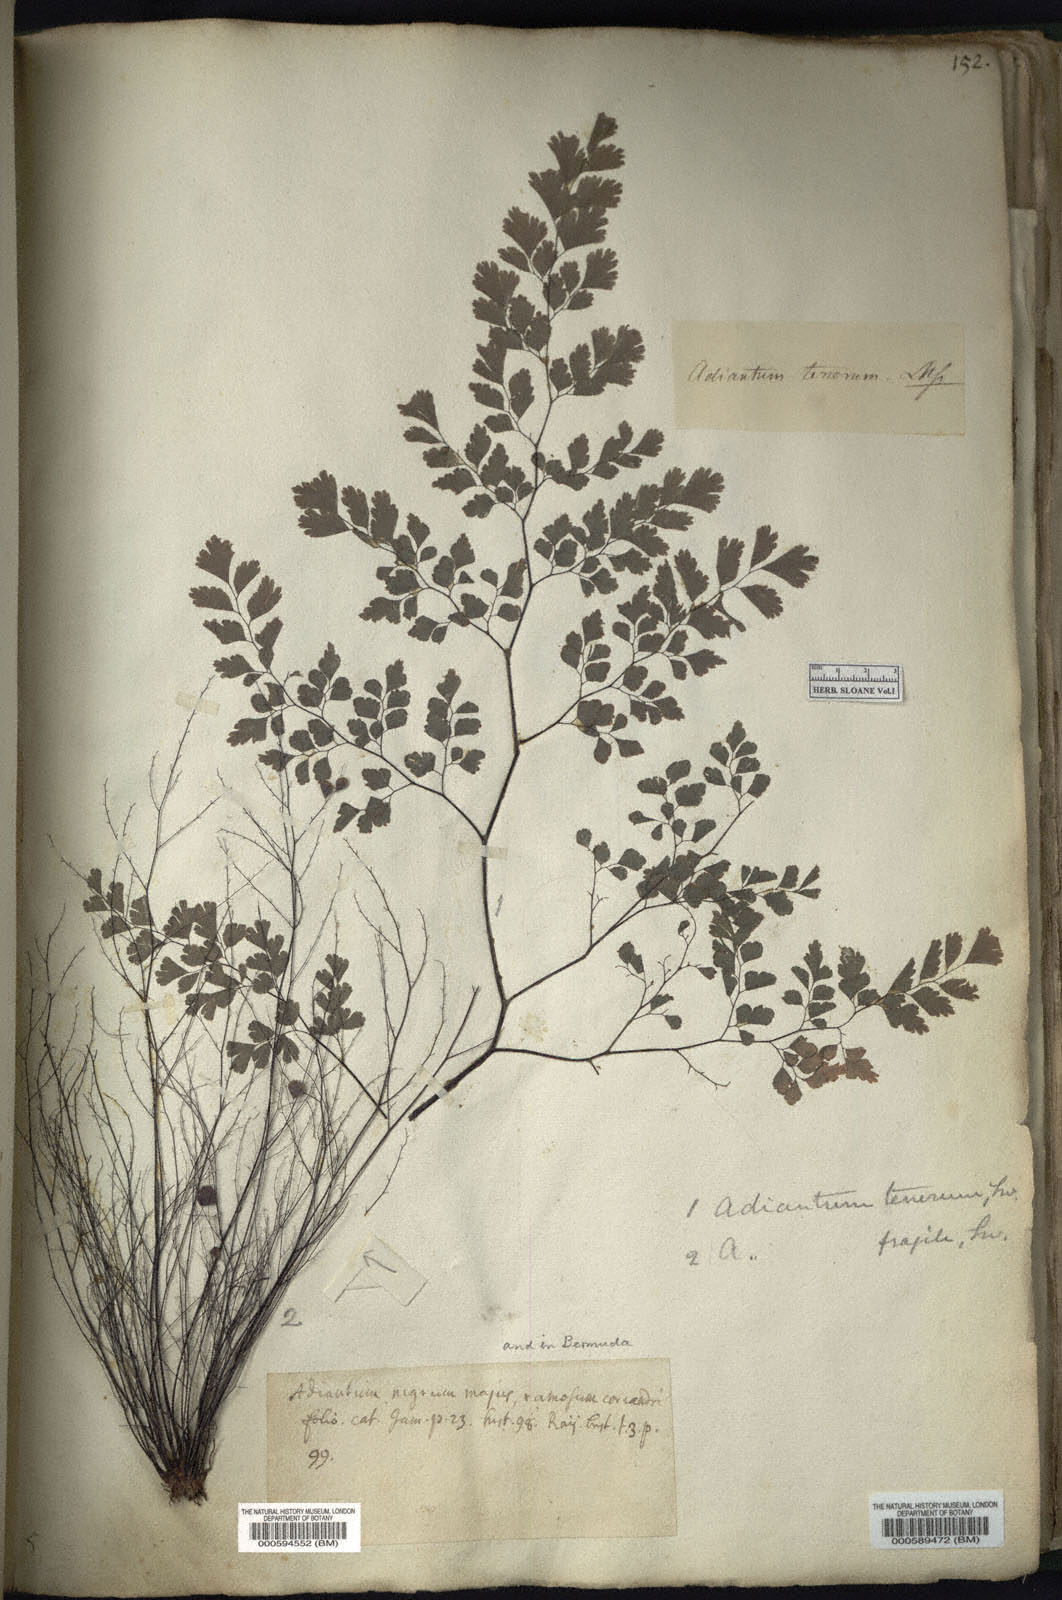 152.
Adiantum tenerum.
mm 1 2 3
HERB. SLOANE Vol.1
1 Adiantum tenerum, Sw.
2 A. „ fragile, Sw.
1
2
and in Bermuda
Adiantum nigrum majus, ramosum coriandri
folio. cat. Jam. p. 23. hist. 98. Raij. hist. t. 3. p.
99.
THE NATURAL HISTORY MUSEUM, LONDON
DEPARTMENT OF BOTANY
000594552 (BM)
THE NATURAL HISTORY MUSEUM, LONDON
DEPARTMENT OF BOTANY
000589472 (BM)